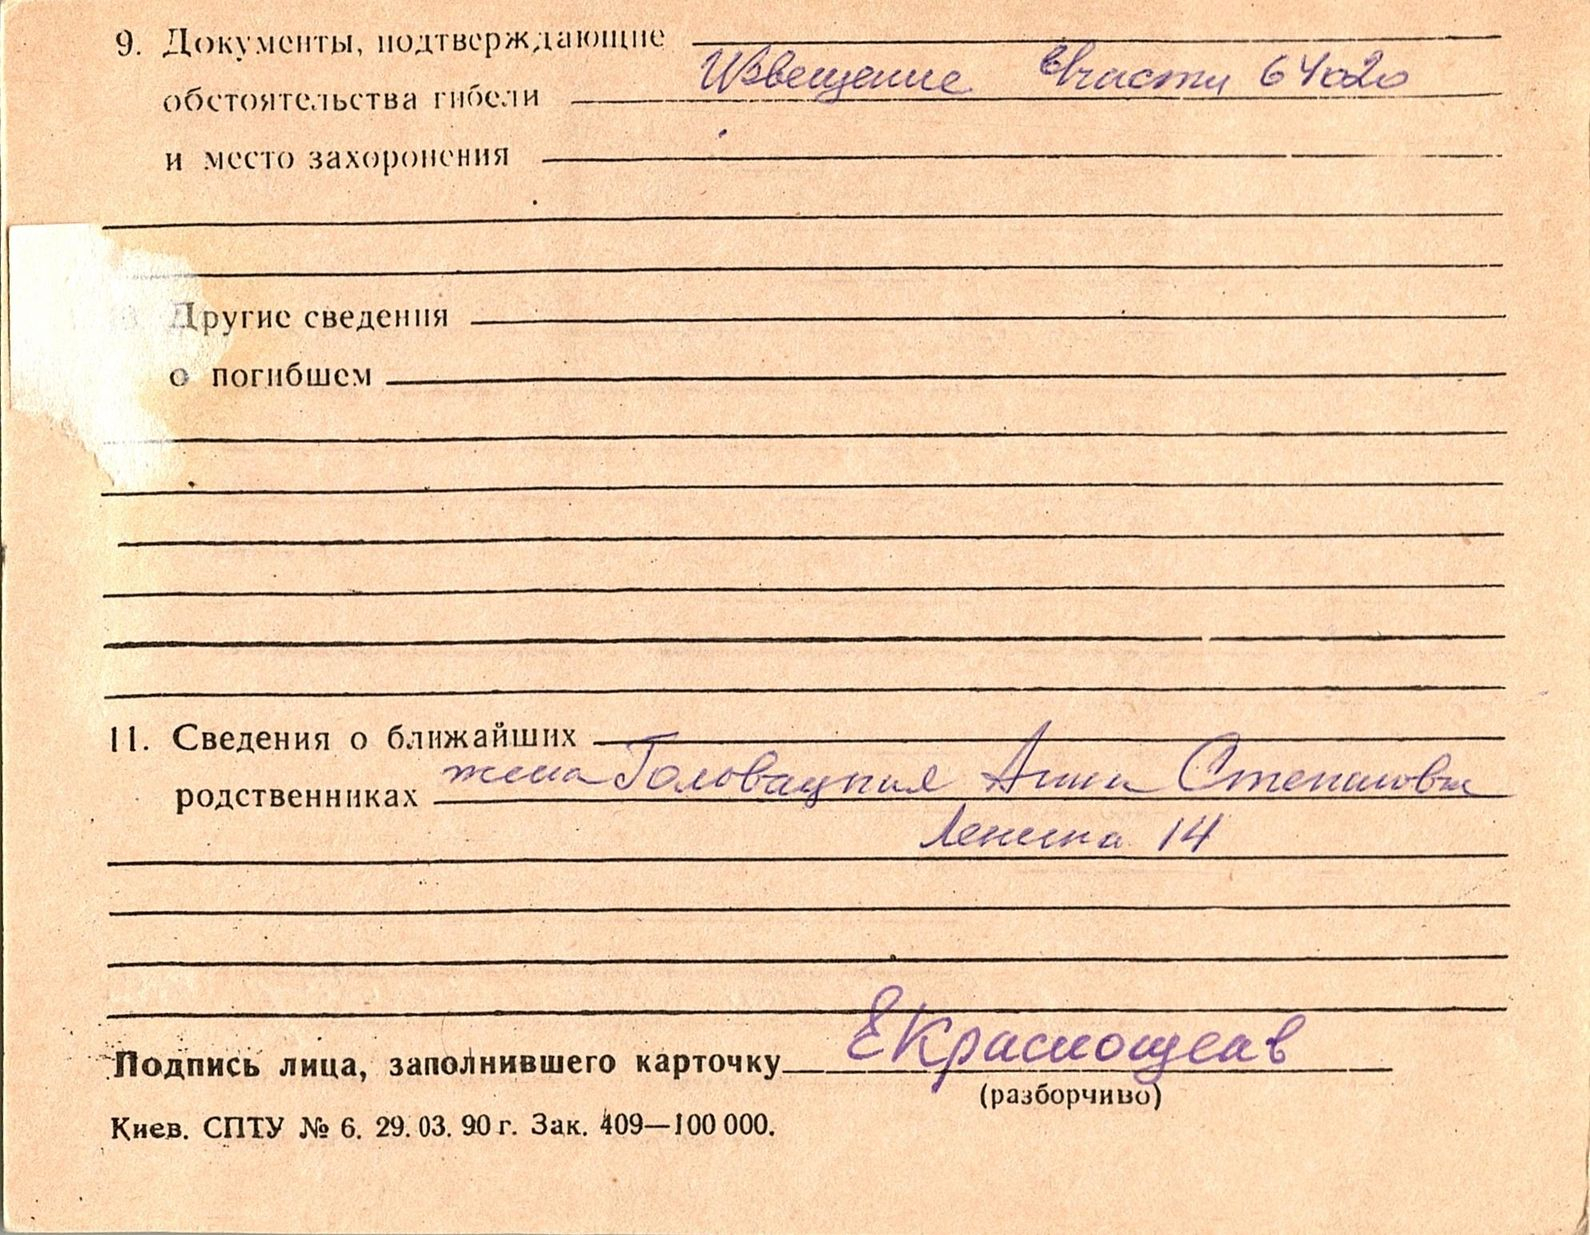 9. Документы, подтверждающие
обстоятельства гибели Извещение в/части 64020
и место захоронения
Другие сведения
о погибшем
11. Сведения о ближайших
родственниках жена Головацкая Анна Степановна
Ленина 14
Подпись лица, заполнившего карточку ЕКраснощеав
(разборчиво)
Киев. СПТУ № 6. 29.03.90 г. Зак. 409—100 000.